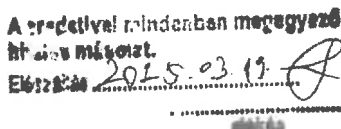 A eredetivel mindenben megegyező
hiteles másolat.
Előszállás 2015.03.19.